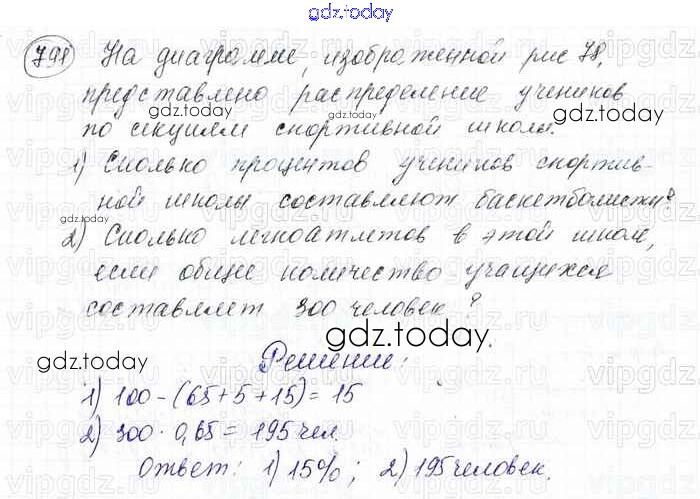 gdz.today
798 На диаграмме, изображенной рис 78,
gdz.today
представлено распределение учеников
gdz.today
по секциям спортивной школы.
gdz.today
1) Сколько процентов учеников спортив-
ной школы составляют баскетболисты?
gdz.today
2) Сколько легкоатлетов в этой школе,
если общее количество учащихся
составляет 300 человек?
gdz.today
gdz.today
Решение:
1) 100 - (65 + 5 + 15) = 15
2) 300 · 0,65 = 195 чел.
Ответ: 1) 15%; 2) 195 человек.